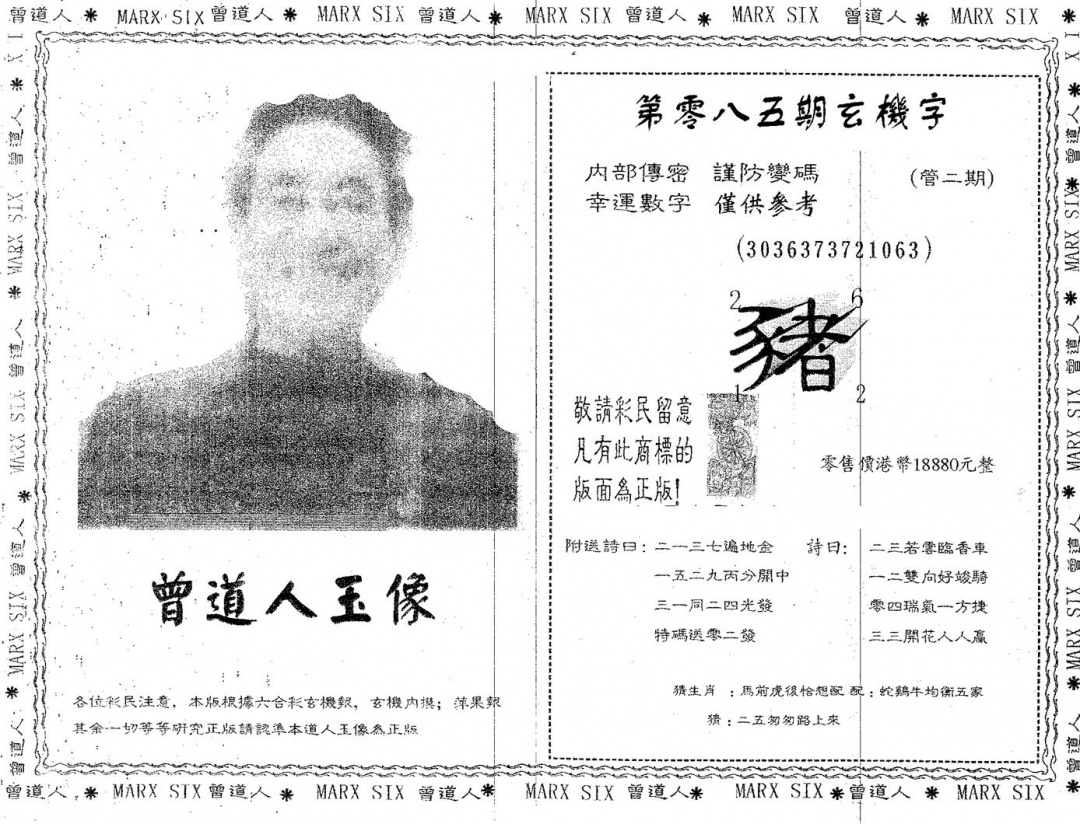 曾道人 * MARX SIX 曾道人 * MARX SIX 曾道人 * MARX SIX 曾道人 * MARX SIX 曾道人 * MARX SIX *
第零八五期玄機字
內部傳密 謹防變碼
(管二期)
幸運數字 僅供參考
(3036373721063)
2 6
豬
1 2
敬請彩民留意
凡有此商標的
版面為正版!
零售價港幣18880元整
附送詩曰: 二一三七遍地金
一五二九丙分開中
三一同二四光發
特碼送零二發
詩曰: 二三若零臨香車
一二雙向好竣騎
零四瑞氣一方捷
三三開花人人贏
猜生肖 : 馬前虎後恰想配 配 : 蛇鷄牛均衡五家
猜 : 二五匆匆路上來
曾道人玉像
各位彩民注意, 本版根據六合彩玄機報, 玄機內摸; 萍果報
其余一切等等研究正版請認準本道人玉像為正版
曾道人 * MARX SIX 曾道人 * MARX SIX 曾道人 * MARX SIX 曾道人 * MARX SIX * 曾道人 * MARX SIX